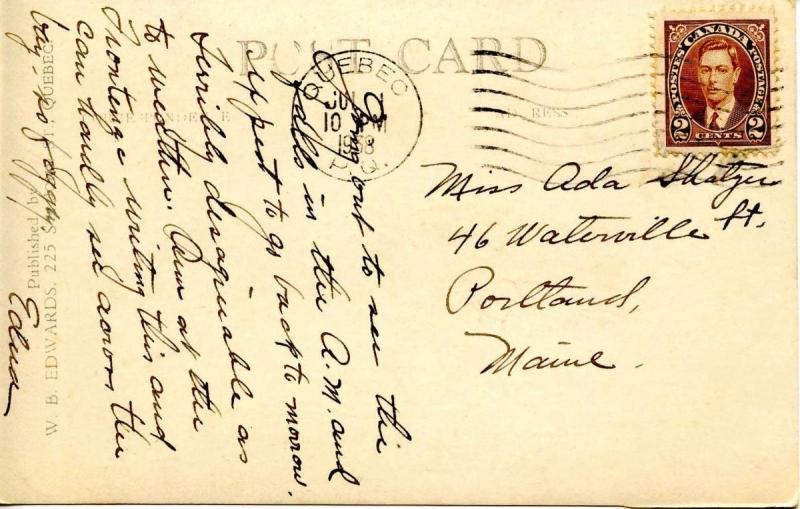 POST CARD
CORRESPONDENCE
ADDRESS
QUEBEC
10 PM
1938
P.Q.
POSTES CANADA POSTAGE
2 CENTS 2
Miss Ada Shatzer
46 Waterville St.
Portland,
Maine.
going out to see the
falls in the A.M. and
expect to go back to morrow.
Terribly disagreeable as
to weather. Am at the
Frontenac writing this and
can hardly see across the
bay. so foggy.
Edna
Published by
W. B. EDWARDS, 225 ST., QUEBEC